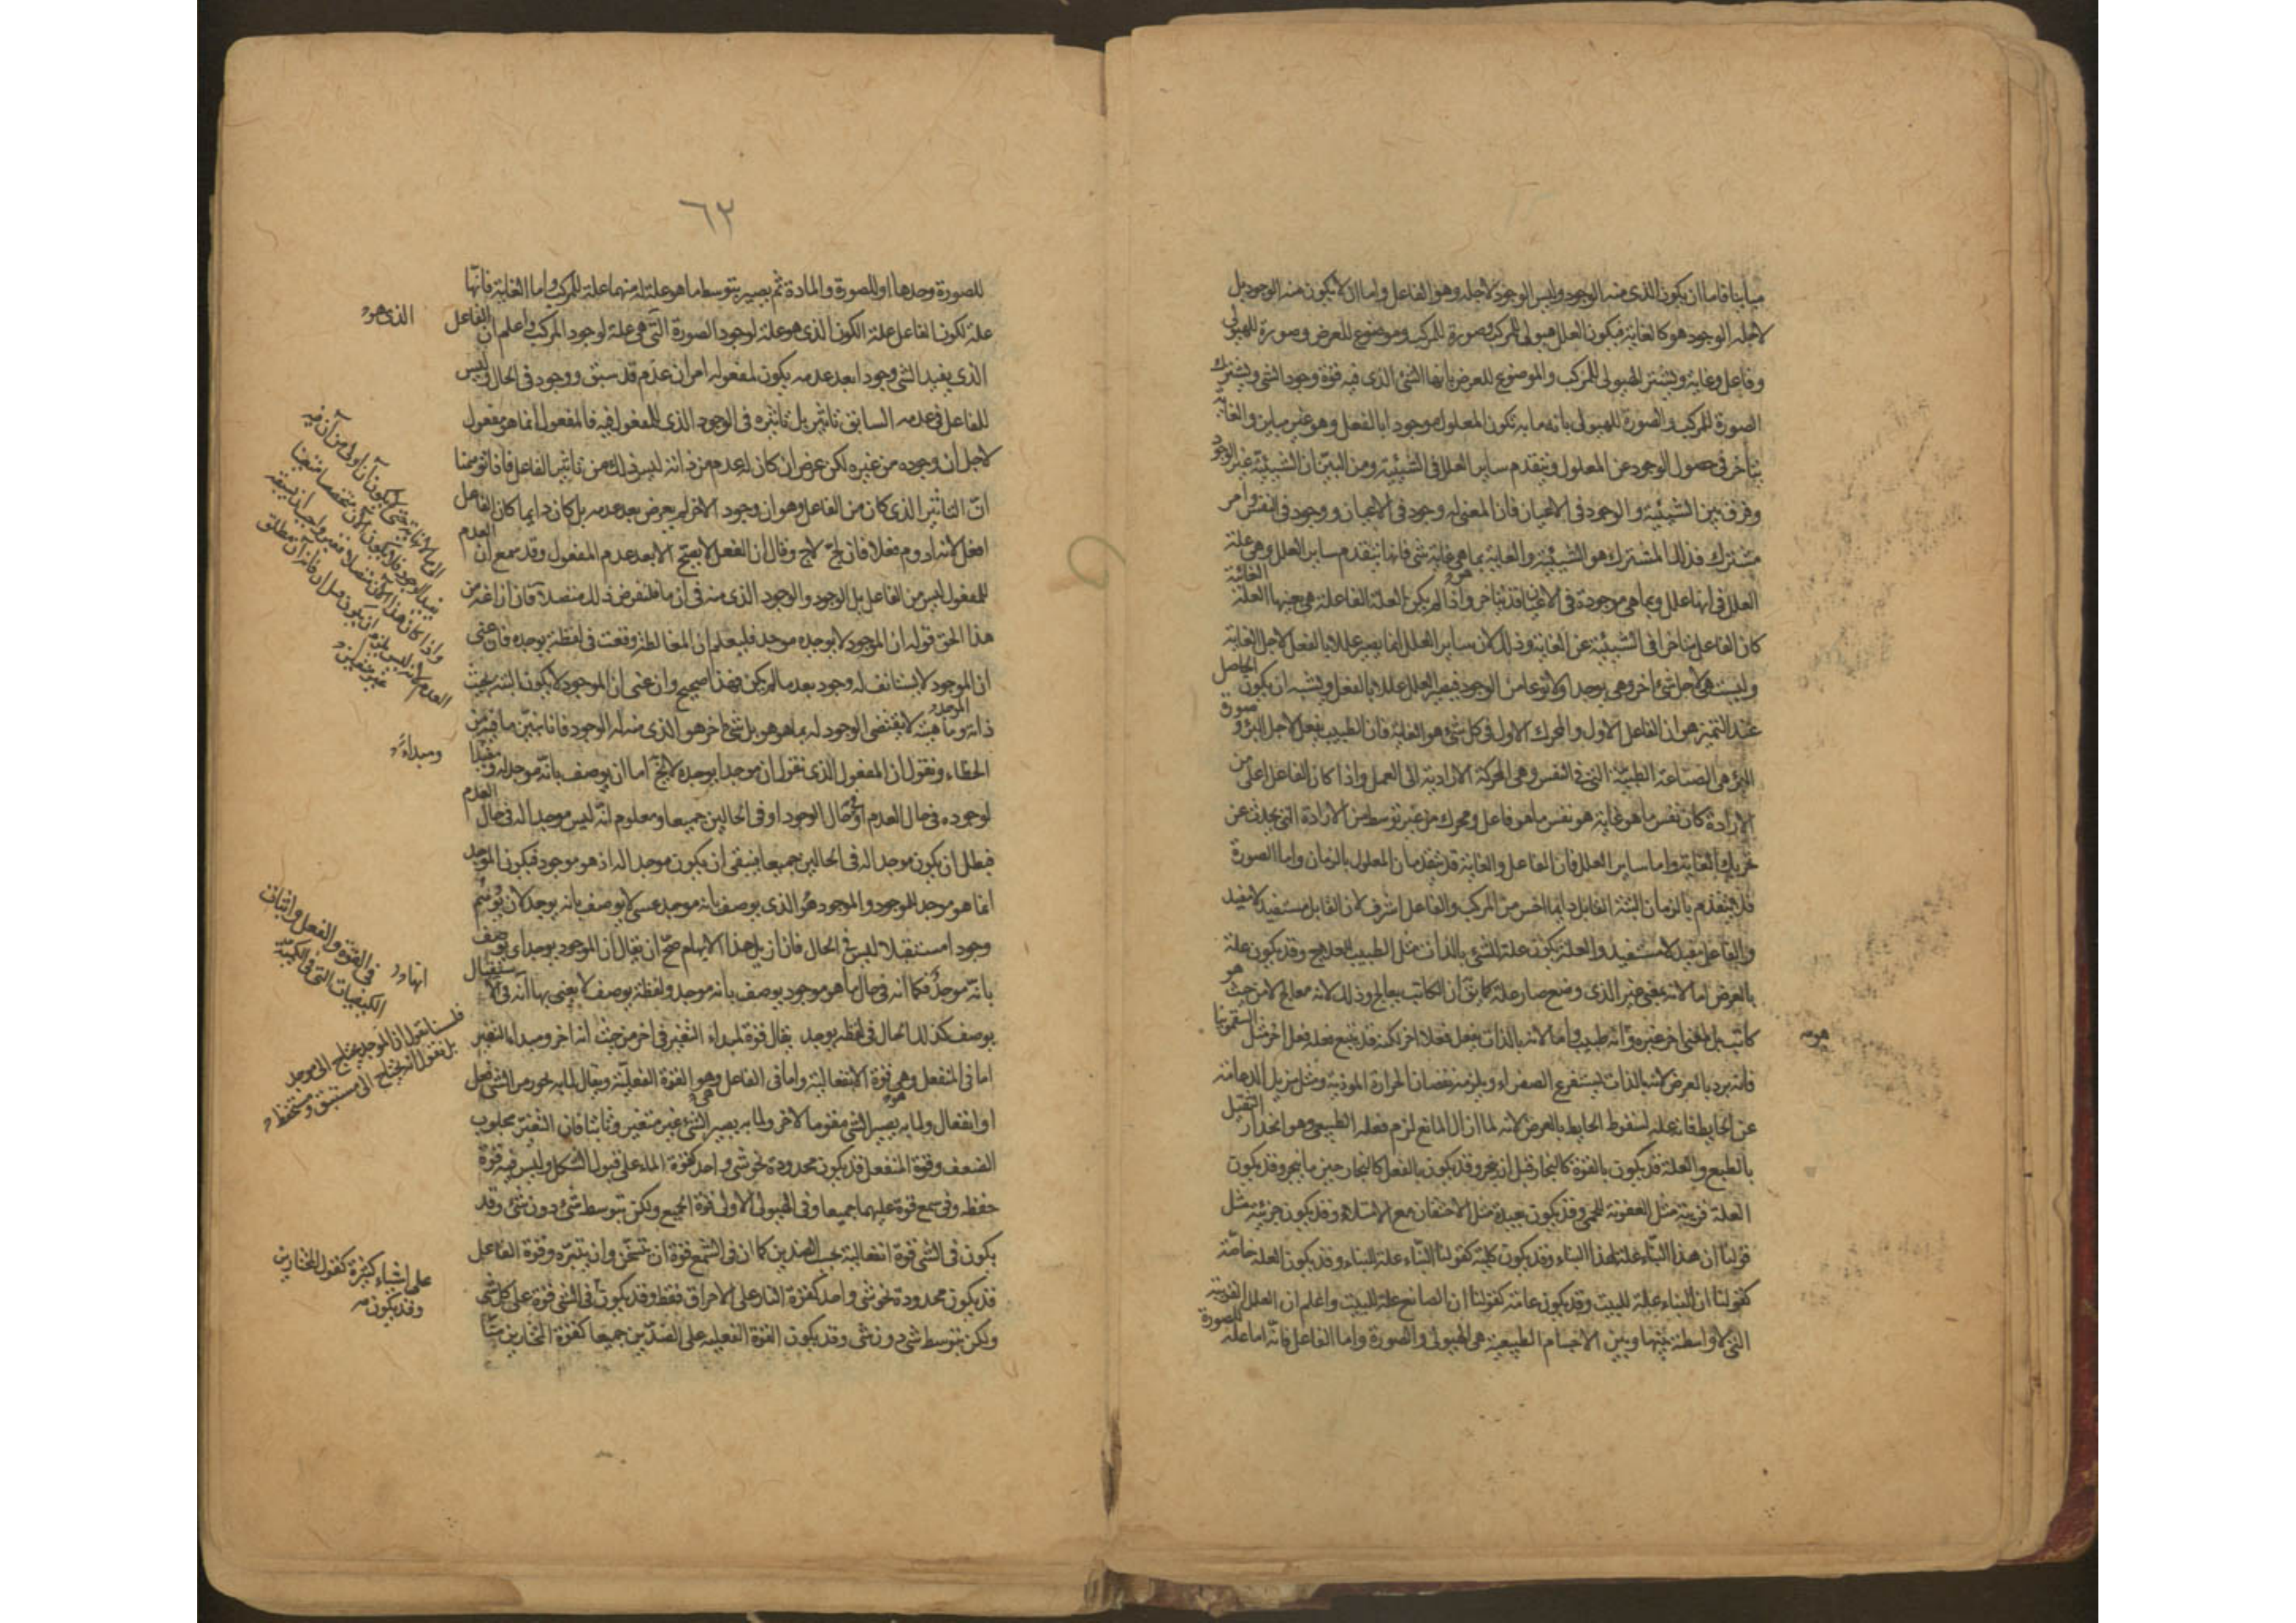 مباينا فاما ان يكون الذى منه الوجود وليس الوجود لاجله وهو الفاعل واما ان لا يكون منه الوجود بل
لاجله الوجود هو كالغاية فيكون العلل هيولى للمركب وصورة للمركب وموضوع للعرض وصورة للهيولى
وفاعل وغاية ويشترك الهيولى للمركب والموضوع للعرض بانها الشئ الذى فيه قوة وجود الشئ ويشترك
الصورة للمركب والصورة للهيولى بانه ما به تكون المعلول موجودا بالفعل وهو غير مباين والغاية
يتأخر فى حصول الوجود عن المعلول ويتقدم ساير العلل فى الشيئية ومن البين ان الشيئية غير الوجود
وفرق بين الشيئية والوجود فى الاعيان فان المعنى له وجود فى الاعيان ووجود فى النفس وامر
مشترك فذلك المشترك هو الشيئية والغاية بما هى غاية شئ فانها يتقدم ساير العلل وهى علة
العلل فى انها علل وبما هى موجودة فى الاعيان قد يتأخر واذا لم يكن العلة الفاعلة هى بعينها العلة الغائية
كان الفاعل متأخرا فى الشيئية عن الغاية وذلك لان ساير العلل انما يصير عللا بالفعل لاجل الغاية
وليست هى لاجل شئ اخر وهى يوجد اولا نوعا من الوجود فيصير العلل عللا بالفعل ويشبه ان يكون الحاصل
عند التميز هو ان الفاعل الاول والمحرك الاول فى كل شئ هو الغاية فان الطبيب يفعل لاجل البرء و
البرء هى الصناعة الطبية التى فى النفس وهى المحركة الارادية الى العمل واذا كان الفاعل اعلى من
الارادة كان نفس ما هو غاية هو نفس ما هو فاعل ومحرك من غير توسط من الارادة التى يحدث عن
تحريك الغاية واما ساير العلل فان الفاعل والغاية قد يتقدمان المعلول بالزمان واما الصورة
فلا يتقدم بالزمان البتة القابل دايما اخس من المركب والفاعل اشرف لان القابل مستفيد لا مفيد
والفاعل مفيد لا مستفيد والعلة يكون علة للشئ بالذات مثل الطبيب للعلاج وقد يكون علة
بالعرض اما لانه بمعنى غير الذى وضع صار علة كما يقال ان الكاتب يعالج وذلك لانه معالج لا من حيث هو
كاتب بل لمعنى اخر غيره وانه طبيب واما لانه بالذات يفعل فعلا اخر لكنه قد يتبع فعله فعل اخر مثل السقمونيا
فانه يبرد بالعرض لانه بالذات يستفرغ الصفراء ويلزمه نقصان الحرارة الموذية ومثل مزيل الدعامة
عن الحايط فانه علة لسقوط الحايط بالعرض لانه لما ازال المانع لزم فعله الطبيعى وهو انحدار الثقيل
بالطبع والعلة قد يكون بالقوة كالنجار قبل ان ينجر وقد يكون بالفعل كالنجار حين ما ينجر وقد يكون
العلة قريبة مثل العفونة للحمى وقد يكون بعيدة مثل الاحتقان مع الامتلاء وقد يكون جزئية مثل
قولنا ان هذا البناء علة لهذا البناء وقد يكون كلية كقولنا البناء علة للبناء وقد يكون العلة خاصة
كقولنا ان البناء علة للبيت وقد يكون عامة كقولنا ان الصانع علة للبيت واعلم ان العلل القريبة
التى لا واسطة بينها وبين الاجسام الطبيعية هى الهيولى والصورة واما الفاعل فانه اما علة للصورة
٦٢
للصورة وحدها او للصورة والمادة ثم يصير بتوسط ما هو علة له منهما علة للمركب واما الغاية فانها
علة لكون الفاعل علة الكون الذى هو علة لوجود الصورة التى هى علة لوجود المركب واعلم ان الفاعل
الذى هو
الذى يفيد الشئ وجودا بعد عدمه يكون لمفعوله امران عدم قد سبق ووجود فى الحال وليس
للفاعل فى عدمه السابق تاثير بل تاثيره فى الوجود الذى للمفعول فيه فالمفعول انما هو مفعول
لاجل ان وجوده من غيره لكن عرض ان كان له عدم من ذاته ليس ذلك من تاثير الفاعل فاذا توهمنا
ان التاثير الذى كان من الفاعل وهو ان وجود الاخر لم يعرض بعد عدمه بل كان دايما كان الفاعل
افعل لانه ادوم فعلا فان لج لاج وقال ان الفعل لا يصح الا بعد عدم المفعول وقد سمع ان العدم
للمفعول ليس من الفاعل بل الوجود والوجود الذى منه فى ان ما فلنفرض ذلك متصلا فان ازاغه من
هذا الحق قوله ان الموجود لا يوجده موجد فليعلم ان المغالطة وقعت فى لفظة يوجده فان عنى
ان الموجود لا يستانف له وجود بعد ما لم يكن فهذا صحيح وان عنى ان الموجود لا يكون البتة بحيث
ذاته وماهيته لا يقتضى الوجود له بما هو هو بل شئ اخر هو الذى منه له الوجود فانا نبين ما فيه من
الخطاء ونقول ان المفعول الذى نقول ان موجدا يوجده لا يخ اما ان يوصف بانه موجد له ومفيد
ومبداء
لوجوده فى حال العدم او فى حال الوجود او فى الحالين جميعا ومعلوم انه ليس موجدا له فى حال العدم
فبطل ان يكون موجدا له فى الحالين جميعا فبقى ان يكون موجدا له اذ هو موجود فيكون الموجد
انما هو موجد للموجود والموجود هو الذى يوصف بانه موجد عسى لا يوصف بانه يوجد لان يوهم
وجودا مستقبلا ليس فى الحال فان ازيل هذا الايهام صح ان يقال ان الموجود يوجد اى يوصف
بانه موجد فكما انه فى حال ما هو موجود يوصف بانه موجد ولفظة يوصف لا يعنى بها انه فى الاستقبال
يوصف كذلك الحال فى لفظه يوجد يقال قوة لمبداء التغير فى اخر من حيث انه اخر ومبداء التغير
فلسنا نقول ان الموجد يحتاج الى موجد
بل نقول انه يحتاج الى مستبق ومستحفظ
اما فى المنفعل وهى قوة الانفعالية واما فى الفاعل وهو القوة الفعلية ويقال لما به يجوز من الشئ فعل
او انفعال ولما به يصير الشئ مقوما لاخر ولما به يصير الشئ غير متغير وثابتا فان التغير مجلوب
الضعف وقوة المنفعل قد يكون محدودة نحو شئ واحد كقوة الماء على قبول الشكل وليس فيه قوة
حفظه وفى شمع قوة عليهما جميعا وفى الهيولى الاولى قوة الجميع ولكن بتوسط شئ دون شئ وقد
يكون فى الشئ قوة انفعالية بحسب الضدين كما ان فى الشمع قوة ان تسخن وان يتبرد وقوة الفاعل
قد يكون محدودة نحو شئ واحد كقوة النار على الاحراق فقط وقد يكون فى الشئ قوة على كل شئ
على اشياء كثيرة كقول المختارين
وقد يكون
ولكن بتوسط شئ دون شئ وقد يكون القوة الفعلية على الضدين جميعا كقوة المختارين منا